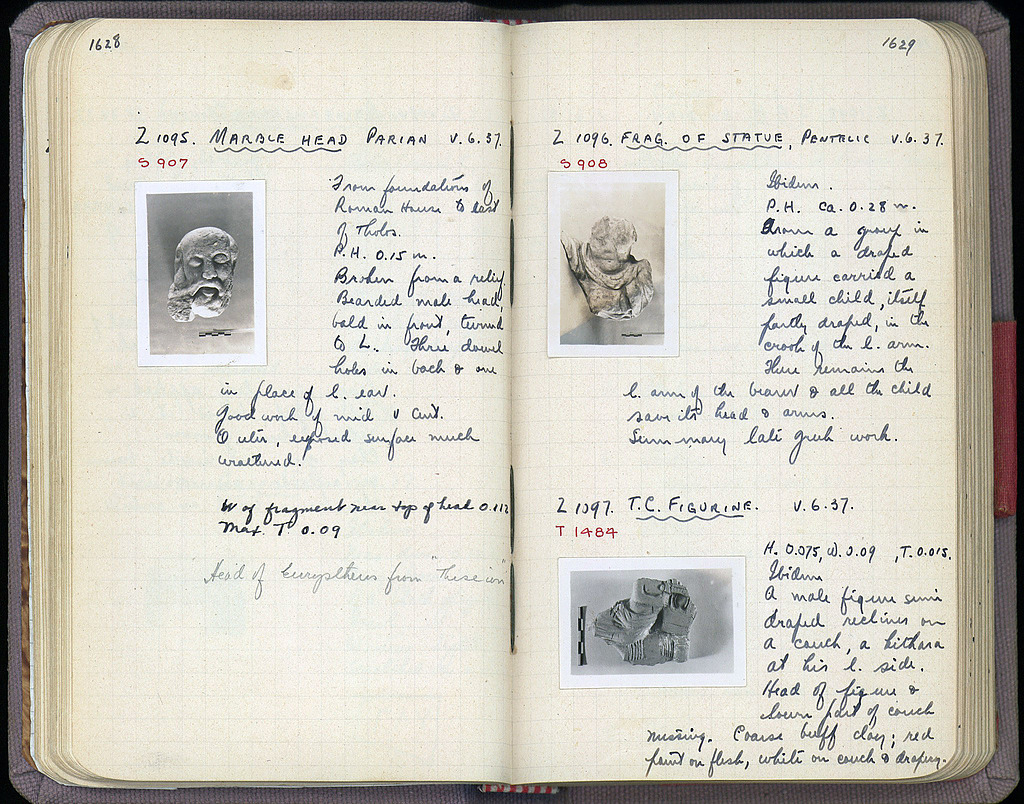 1628
Z 1095. MARBLE HEAD PARIAN V.6.37.
S 907
From foundations of
Roman House to east
of Tholos.
P.H. 0.15 m.
Broken from a relief.
Bearded male head,
bald in front, turned
to L. Three dowel
holes in back & one
in place of l. ear.
Good work of mid V cent.
Outer, exposed surface much
weathered.
W of fragment near top of head 0.112
Max. T 0.09
Head of Eurystheus from "Theseion"
1629
Z 1096. FRAG. OF STATUE, PENTELIC V.6.37.
S 908
Ibidem.
P.H. ca. 0.28 m.
From a group in
which a draped
figure carried a
small child, itself
partly draped, in the
crook of the l. arm.
There remains the
l. arm of the bearer & all the child
save its head & arms.
Summary late greek work.
Z 1097. T.C. FIGURINE. V.6.37.
T 1484
H. 0.075, W. 0.09, T. 0.015.
Ibidem
A male figure semi
draped reclines on
a couch, a kithara
at his l. side.
Head of figure &
lower part of couch
missing. Coarse buff clay; red
paint on flesh, white on couch & drapery.